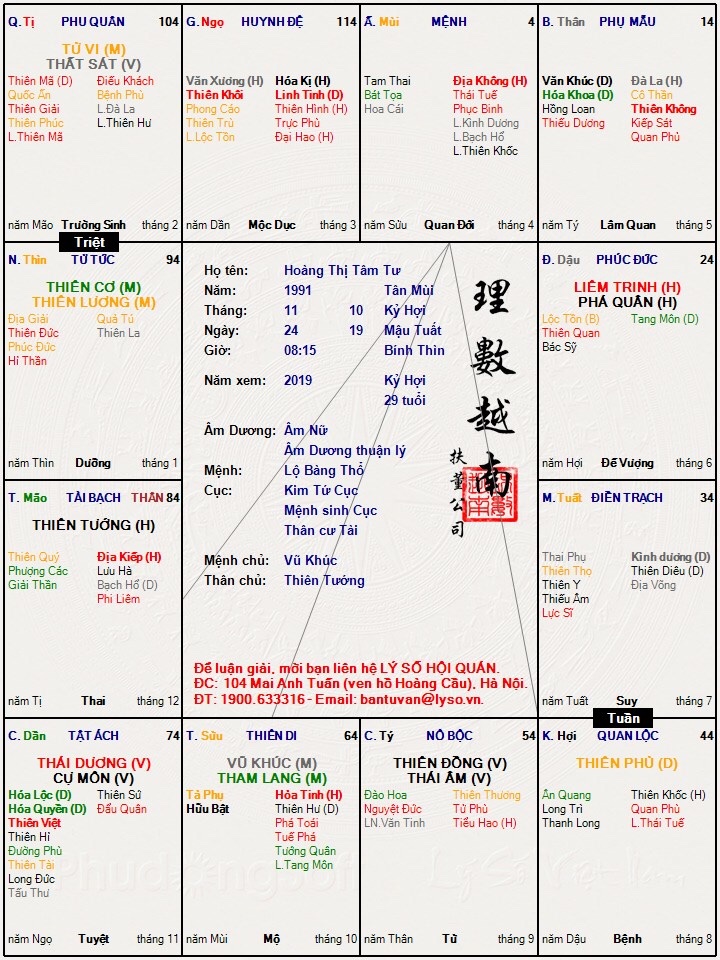 Q. Tị PHU QUÂN 104
TỬ VI (M)
THẤT SÁT (V)
Thiên Mã (D) Điếu Khách
Quốc Ấn Bệnh Phù
Thiên Giải L.Đà La
Thiên Phúc L.Thiên Hư
L.Thiên Mã
năm Mão Trường Sinh tháng 2
G. Ngọ HUYNH ĐỆ 114
Văn Xương (H) Hóa Kị (H)
Thiên Khôi Linh Tinh (D)
Phong Cáo Thiên Hình (H)
Thiên Trù Trực Phù
L.Lộc Tồn Đại Hao (H)
năm Dần Mộc Dục tháng 3
Ấ. Mùi MỆNH 4
Tam Thai Địa Không (H)
Bát Tọa Thái Tuế
Hoa Cái Phục Binh
L.Kình Dương
L.Bạch Hổ
L.Thiên Khốc
năm Sửu Quan Đới tháng 4
B. Thân PHỤ MẪU 14
Văn Khúc (D) Đà La (H)
Hóa Khoa (D) Cô Thần
Hồng Loan Thiên Không
Thiếu Dương Kiếp Sát
Quan Phủ
năm Tý Lâm Quan tháng 5
Triệt
N. Thìn TỬ TỨC 94
THIÊN CƠ (M)
THIÊN LƯƠNG (M)
Địa Giải Quả Tú
Thiên Đức Thiên La
Phúc Đức
Hỉ Thần
năm Thìn Dưỡng tháng 1
Họ tên: Hoàng Thị Tâm Tư
Năm: 1991 Tân Mùi
Tháng: 11 10 Kỷ Hợi
Ngày: 24 19 Mậu Tuất
Giờ: 08:15 Bính Thìn
Năm xem: 2019 Kỷ Hợi
29 tuổi
Âm Dương: Âm Nữ
Âm Dương thuận lý
Mệnh: Lộ Bàng Thổ
Cục: Kim Tứ Cục
Mệnh sinh Cục
Thân cư Tài
Mệnh chủ: Vũ Khúc
Thân chủ: Thiên Tướng
理數越南
扶董公司
Để luận giải, mời bạn liên hệ LÝ SỐ HỘI QUÁN.
ĐC: 104 Mai Anh Tuấn (ven hồ Hoàng Cầu), Hà Nội.
ĐT: 1900.633316 - Email: bantuvan@lyso.vn.
Đ. Dậu PHÚC ĐỨC 24
LIÊM TRINH (H)
PHÁ QUÂN (H)
Lộc Tồn (B) Tang Môn (D)
Thiên Quan
Bác Sỹ
năm Hợi Đế Vượng tháng 6
T. Mão TÀI BẠCH THÂN 84
THIÊN TƯỚNG (H)
Thiên Quý Địa Kiếp (H)
Phượng Các Lưu Hà
Giải Thần Bạch Hổ (D)
Phi Liêm
năm Tị Thai tháng 12
M. Tuất ĐIỀN TRẠCH 34
Thai Phụ Kình dương (D)
Thiên Thọ Thiên Diêu (D)
Thiên Y Địa Võng
Thiếu Âm
Lực Sĩ
năm Tuất Suy tháng 7
Tuần
C. Dần TẬT ÁCH 74
THÁI DƯƠNG (V)
CỰ MÔN (V)
Hóa Lộc (D) Thiên Sứ
Hóa Quyền (D) Đẩu Quân
Thiên Việt
Thiên Hỉ
Đường Phù
Thiên Tài
Long Đức
Tấu Thư
năm Ngọ Tuyệt tháng 11
T. Sửu THIÊN DI 64
VŨ KHÚC (M)
THAM LANG (M)
Tả Phụ Hỏa Tinh (H)
Hữu Bật Thiên Hư (D)
Phá Toái
Tuế Phá
Tướng Quân
L.Tang Môn
năm Mùi Mộ tháng 10
C. Tý NÔ BỘC 54
THIÊN ĐỒNG (V)
THÁI ÂM (V)
Đào Hoa Thiên Thương
Nguyệt Đức Tử Phù
LN.Văn Tinh Tiểu Hao (H)
năm Thân Tử tháng 9
K. Hợi QUAN LỘC 44
THIÊN PHỦ (D)
Ân Quang Thiên Khốc (H)
Long Trì Quan Phù
Thanh Long L.Thái Tuế
năm Dậu Bệnh tháng 8